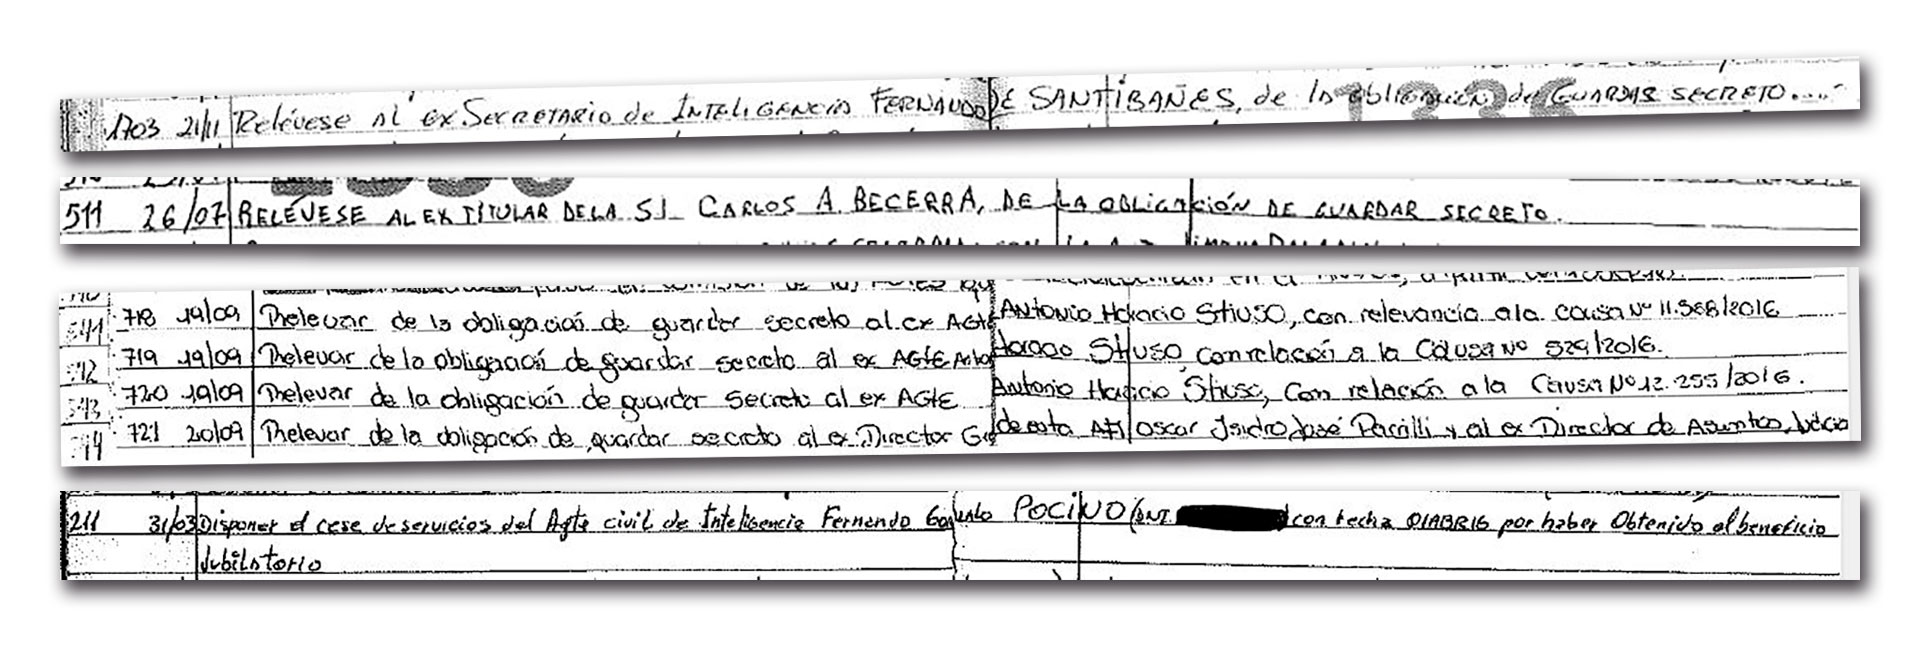 1703 21/11 Relévese al ex Secretario de INTELIGENCIA FERNANDO DE SANTIBAÑES, de la obligación de GUARDAR SECRETO....-
511 26/07 RELÉVESE AL EX TITULAR DE LA SI CARLOS A. BECERRA, DE LA OBLIGACIÓN DE GUARDAR SECRETO.
718 19/09 Relevar de la obligación de guardar secreto al ex AGTE Antonio Horacio Stiuso, con relevancia a la causa Nº 11.568/2016
719 19/09 Relevar de la obligación de guardar secreto al ex AGTE Anto Horacio Stiuso con relación a la Causa Nº 529/2016.
720 19/09 Relevar de la obligación de guardar secreto al ex AGTE Antonio Horacio Stiuso, con relación a la Causa Nº 12.255/2016.
721 20/09 Relevar de la obligación de guardar secreto al ex Director de esta AFI Oscar Isidro José Parrilli y al ex Director de Asuntos
211 31/03 Disponer el cese de servicios del Agte civil de Inteligencia Fernando POCINO (DNI. ) con fecha 01ABR16 por haber Obtenido el beneficio
Jubilatorio